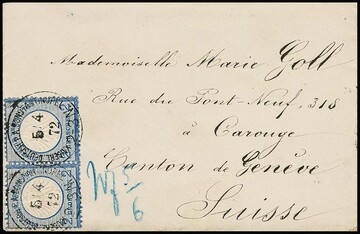 Mademoiselle Marie Goll
Rue du Pont-Neuf, 318
à Carouge
Canton de Genève
Suisse
5/4
72
5/4
72
5/6